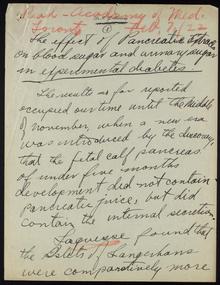 Read - Academy of Med.
Toronto ① Feb 7/22
The effect of Pancreatic Extract
on blood sugar and urinary sugar
in experimental diabetes
The results so far reported
occupied our time until the middle
of November, when a new era
was introduced by the discovery
that the fetal calf pancreas
of under five months
development did not contain
pancreatic juice, but did
contain the internal secretion.
Laguesse found that
the Islets of Langerhans
were comparatively more